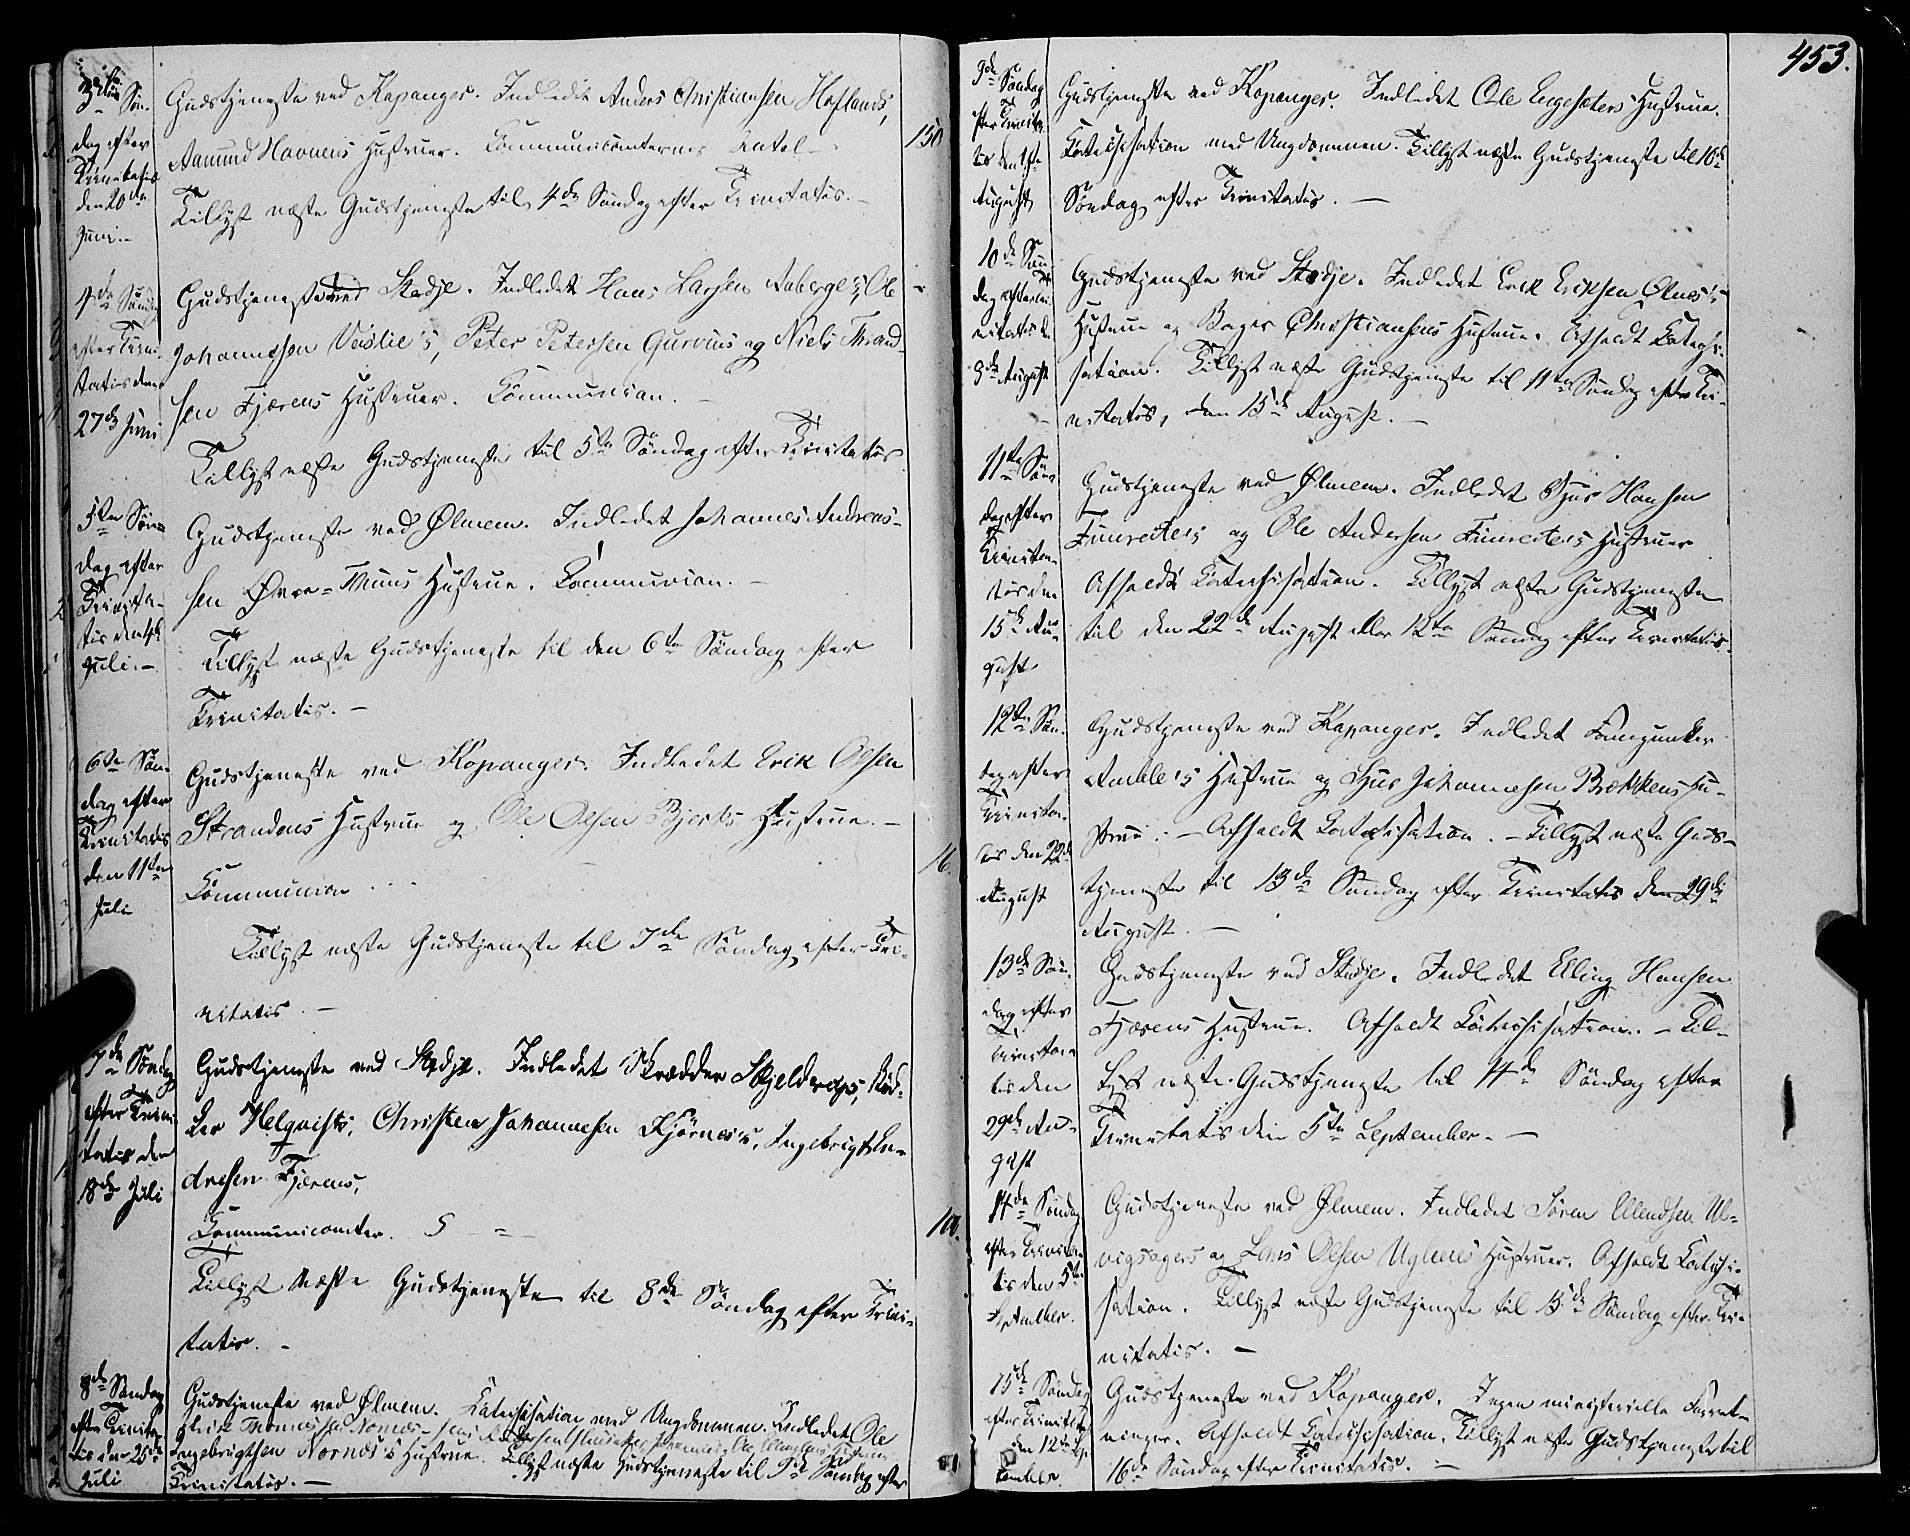 3die Søn-
dag efter
Trinitatis
den 20de
Juni.-
Gudstjeneste ved Kapanger. Indledt Anders Christiansen Hoflands,
Aamund Havnens Hustruer. Communicanternes Antal -
150
Tillyst næste Gudstjeneste til 4de Søndag efter Trinitatis.-
4de Søndag
efter Trini-
tatis den
27de Juni
Gudstjeneste ved Stedje. Indledet Hans Larsen Aaberge's, Ole
Johannesen Veslie's, Peter Petersen Gurvins og Niels Thrond-
sen Fjærens Hustruer. Communion. -
Tillyst næste Gudstjeneste til 5te Søndag efter Trinitatis
5te Søn-
dag efter
Trinita-
tis den 4de
Juli.-
Gudstjeneste ved Ølmem. Indledet Johannes Andreas-
sen Øvre-Muns Hustrue. Communion. -
Tillyst næste Gudstjeneste til den 6te Søndag efter
Trinitatis. -
6te Søn-
dag efter
Trinitatis
den 11te
Juli
Gudstjeneste ved Kopanger. Indledet Erik Olsen
Strandens Hustrue og Ole Olsen Bjerks Hustrue. -
Communion
16
Tillyst næste Gudstjeneste til 7de Søndag efter Tri-
nitatis -
7de Søndag
efter Trini-
tatis den
18de Juli
Gudstjeneste ved Stedje. Indledet Skrædder Skjeldraps,
der Helqvists, Christen Johannesen Kjørnes's, Ingebrigt En-
dresen Fjærens,
Communicanter. 5 - -
100.
Tillyst næste Gudstjeneste til 8de Søndag efter Trini-
tatis. -
8de Søndag
efter Trinita-
tis den 25de
Juli
Gudstjeneste ved Ølmem. Catechisation med Ungdommen. Indledet Ole
Erik Thomassen Nornes-
Ingebrigtsen Nornes's Hustrue. Tillyst næste Gudstjeneste til 9de Søndag efter
Trinitatis. -
453.
9de Søndag
efter Trinita-
tis den 1ste
August
Gudstjeneste ved Kopanger. Indledet Ole Engesæters Hustrue.
Catechisation med Ungdommen. Tillyst næste Gudstjeneste til 10de
Søndag efter Trinitatis. -
10de Søn-
dag efter Tri-
nitatis d.
8de August
Gudstjeneste ved Stedje. Indledet Erik Eriksen Ølnes's
Hustrue og Bager Christiansens Hustrue. Afholdt Catechi-
sation. Tillyst næste Gudstjeneste til 11te Søndag efter Tri-
nitatis, den 15de August. -
11te Søn-
dag efter
Trinita-
tis den
15de Au-
gust
Gudstjeneste ved Ølmem. Indledet Sjur Hansen
Fimreite's og Ole Andersen Fimreite's Hustruer
Afholdt Catechisation. Tillyst næste Gudstjeneste
til den 22de August eller 12te Søndag efter Trinitatis.
12te Søn-
dag efter
Trinita-
tis den 22de
August
Gudstjeneste ved Kapanger. Indledet
Amble's Hustrue og Sjur Johannesen Brækkens Hu-
strue. - Afholdt Catechisation. - Tillyst næste Guds-
tjeneste til 13de Søndag efter Trinitatis den 29de
August. -
13de Søn-
dag efter
Trinita-
tis den
29de Au-
gust
Gudstjeneste ved Stedje. Indledet Elling Hansen
Fjærens Hustrue. Afholdt Catechisation. - Til-
lyst næste Gudstjeneste til 14de Søndag efter
Trinitatis den 5te September. -
14de Søndag
efter Trinita-
tis den 5te
September.
Gudstjeneste ved Ølmem. Indledet Søren Ellendsen Ul-
vigsagers og Lars Olsen Uglums Hustruer. Afholdt Catechi-
sation. Tillyst næste Gudstjeneste til 15de Søndag efter Tri-
nitatis. -
15de Søndag
efter Trinitatis
den 12te Sep-
tember.
Gudstjeneste ved Kopanger. Ingen ministerielle Forret-
ninger. Afholdt Catechisation. Tillyst næste Gudstjeneste til
16de Søndag efter Trinitatis. -